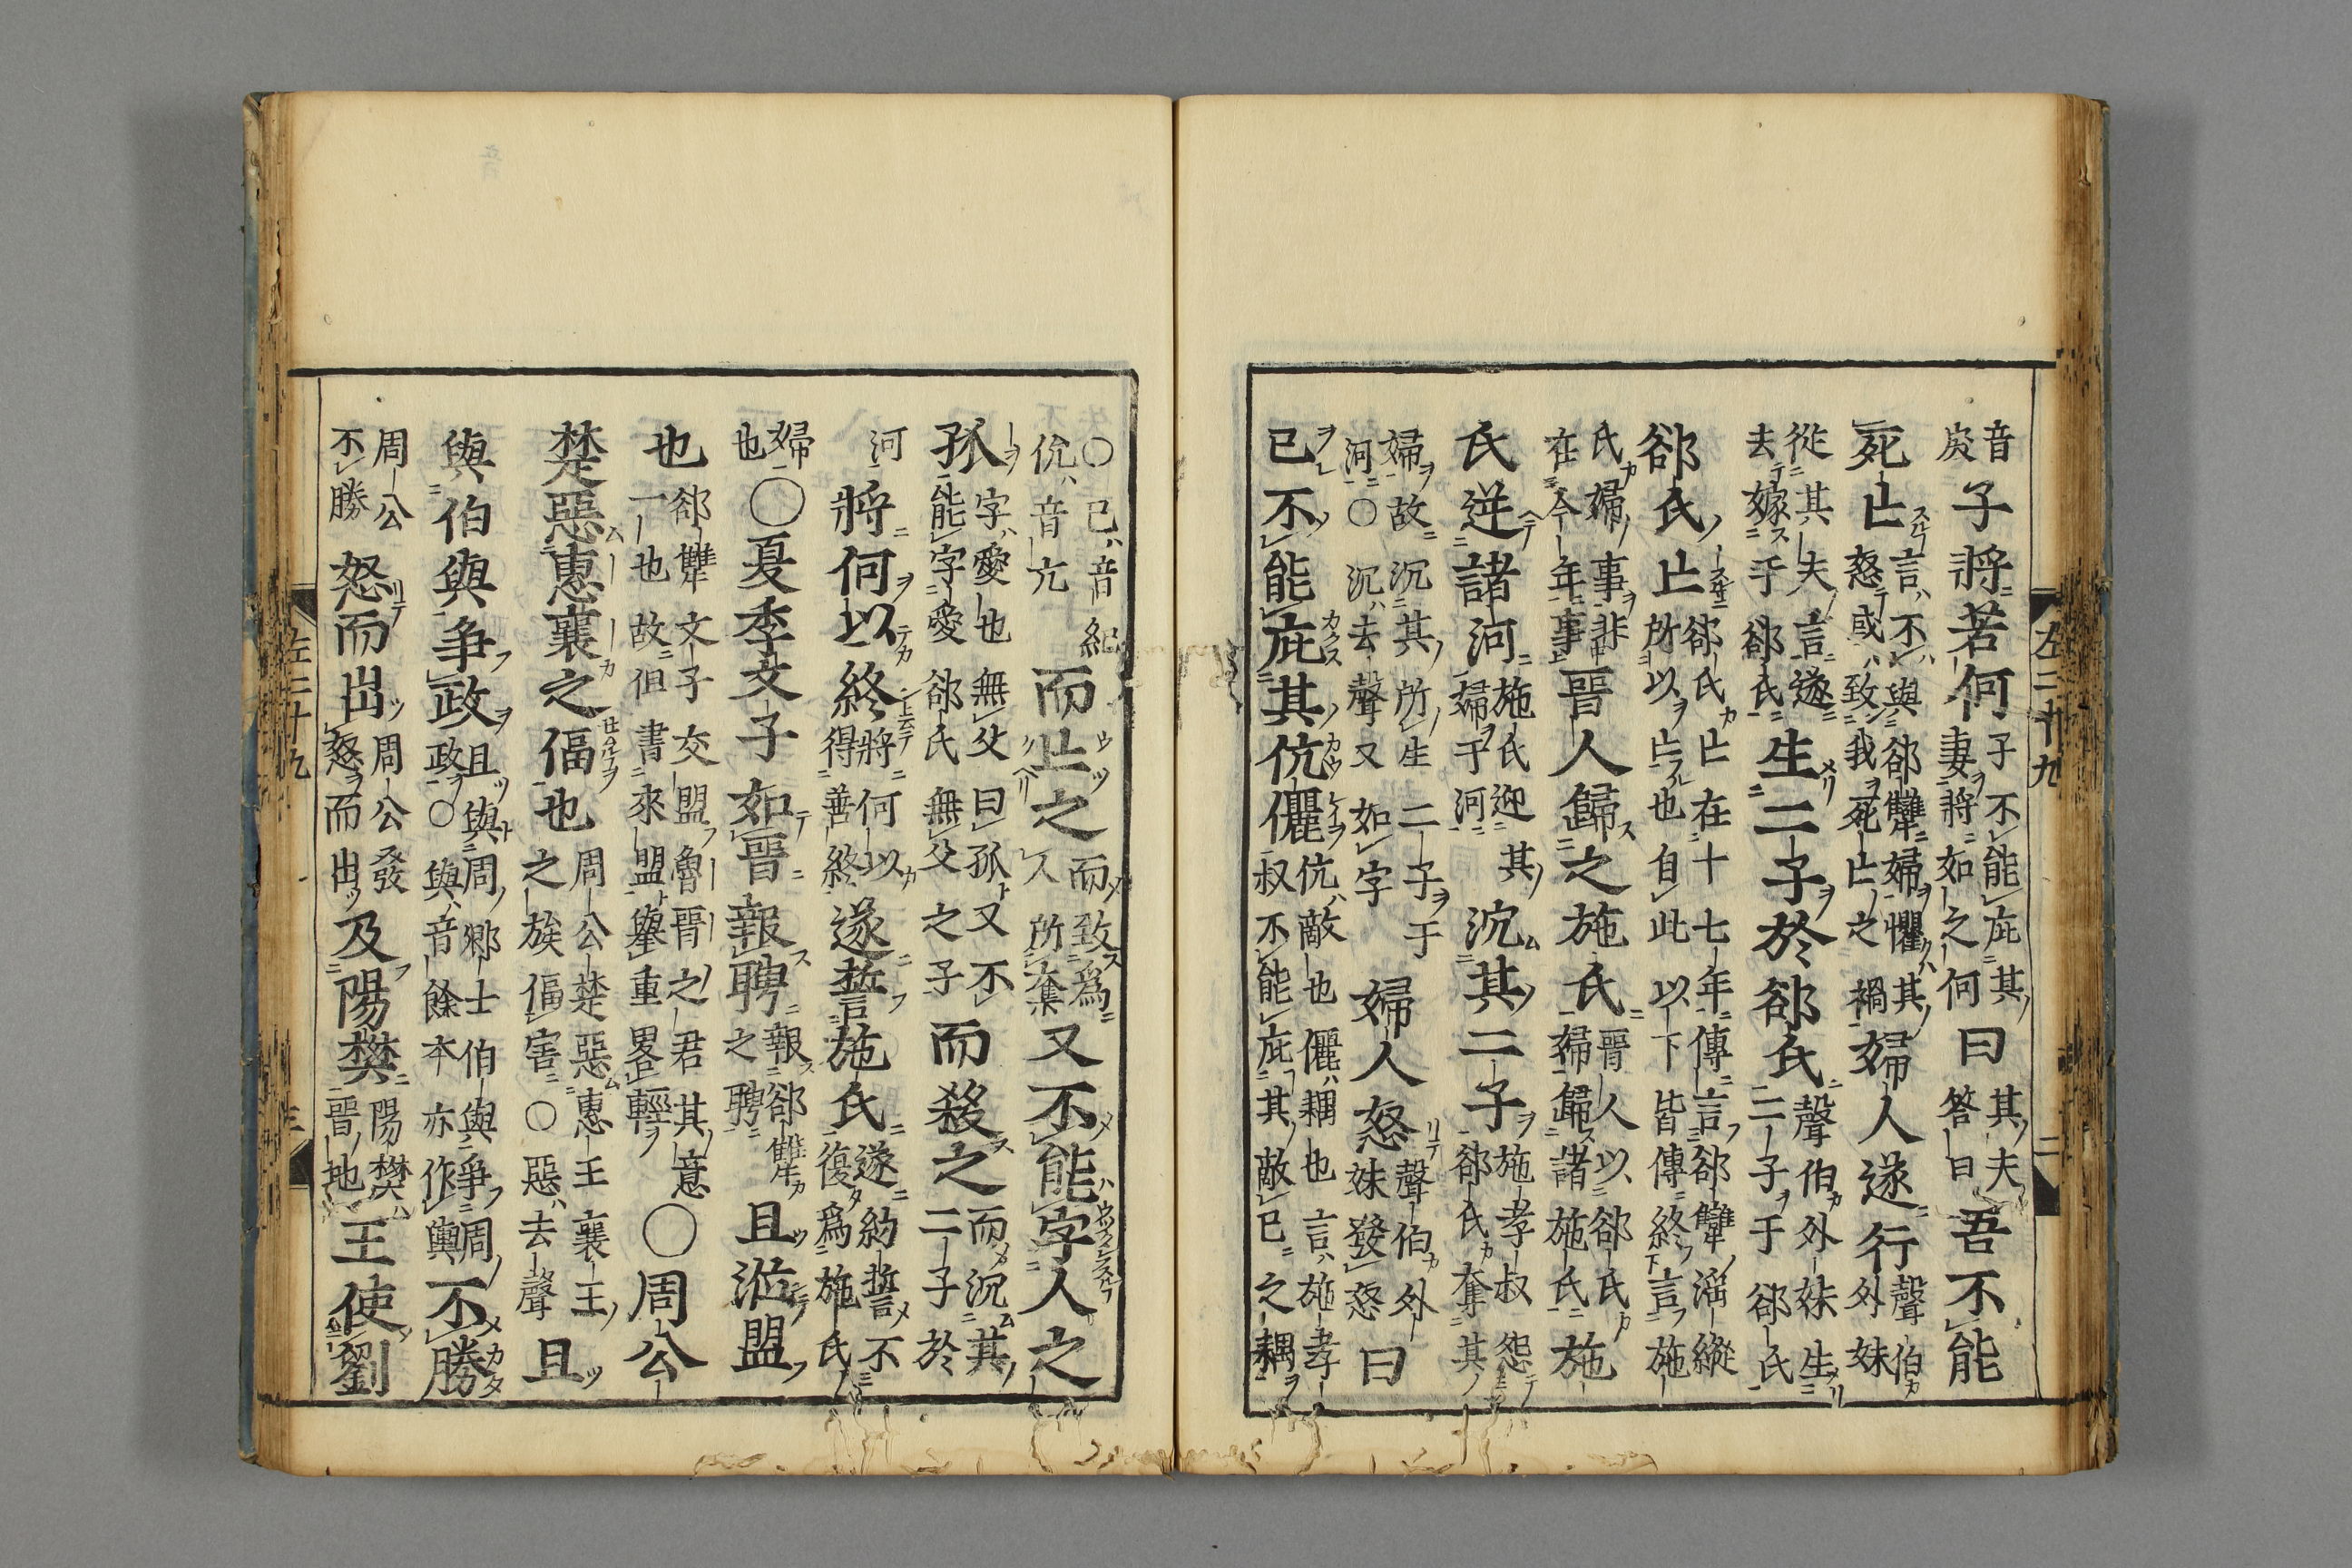 左二十九 二
音戾子將若何子不能庇其妻將如之何曰其夫答曰吾不能
死亡言不與郤犨婦懼其怒或致我死亡之禍婦人遂行聲伯外妹
從其夫言遂去嫁于郤氏生二子於郤氏聲伯外妹生二子于郤氏
郤氏亡郤氏亡在十七年傳言郤犨淫縱所以亡也自此以下皆傳終言施
氏婦事非在今年事晉人歸之施氏晉人以郤氏婦歸諸施氏施
氏逆諸河施氏迎婦于河沉其二子施孝叔怨郤氏奪其
婦故沉其所生二子于河○沉去聲又如字婦人怒聲伯外妹發怒曰
已不能庇其伉儷伉敵也儷耦也言施孝叔不能庇其敵已之耦
○已音紀伉音亢而亡之而致爲人所奪又不能字人之
孤字愛也無父曰孤又不能字愛郤氏無父之子而殺之而沉其二子於
河將何以終將何以得善終遂誓施氏遂約誓不復爲施氏
婦也○夏季文子如晉報聘報郤犨之聘且涖盟
也郤犨文子交盟魯晉之君其意一也故但書來盟擧重畧輕○周公
楚惡惠襄之偪也周公楚惡惠王襄王之族偪害○惡去聲且
與伯與爭政且與周卿士伯與爭周政○與音餘本亦作輿不勝
周公不勝怒而出周公發怒而出及陽樊陽樊晉地王使劉
左二十九 三